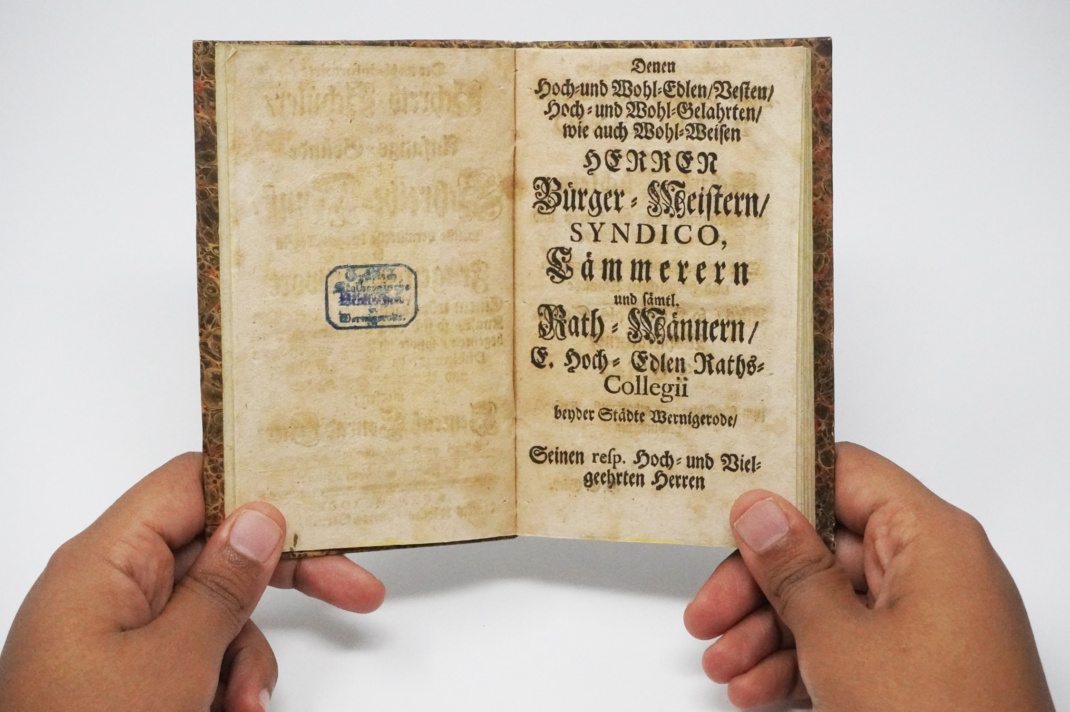 Gräflich
Stolbergische
Bibliothek
Wernigerode.
Denen
Hoch-und Wohl-Edlen/Vesten/
Hoch-und Wohl-Gelahrten/
wie auch Wohl-Weisen
HERREN
Bürger-Meistern/
SYNDICO,
Cämmerern
und sämtl.
Rath-Männern/
E. Hoch-Edlen Raths-
Collegii
beyder Städte Wernigerode/
Seinen resp. Hoch-und Viel-
geehrten Herren